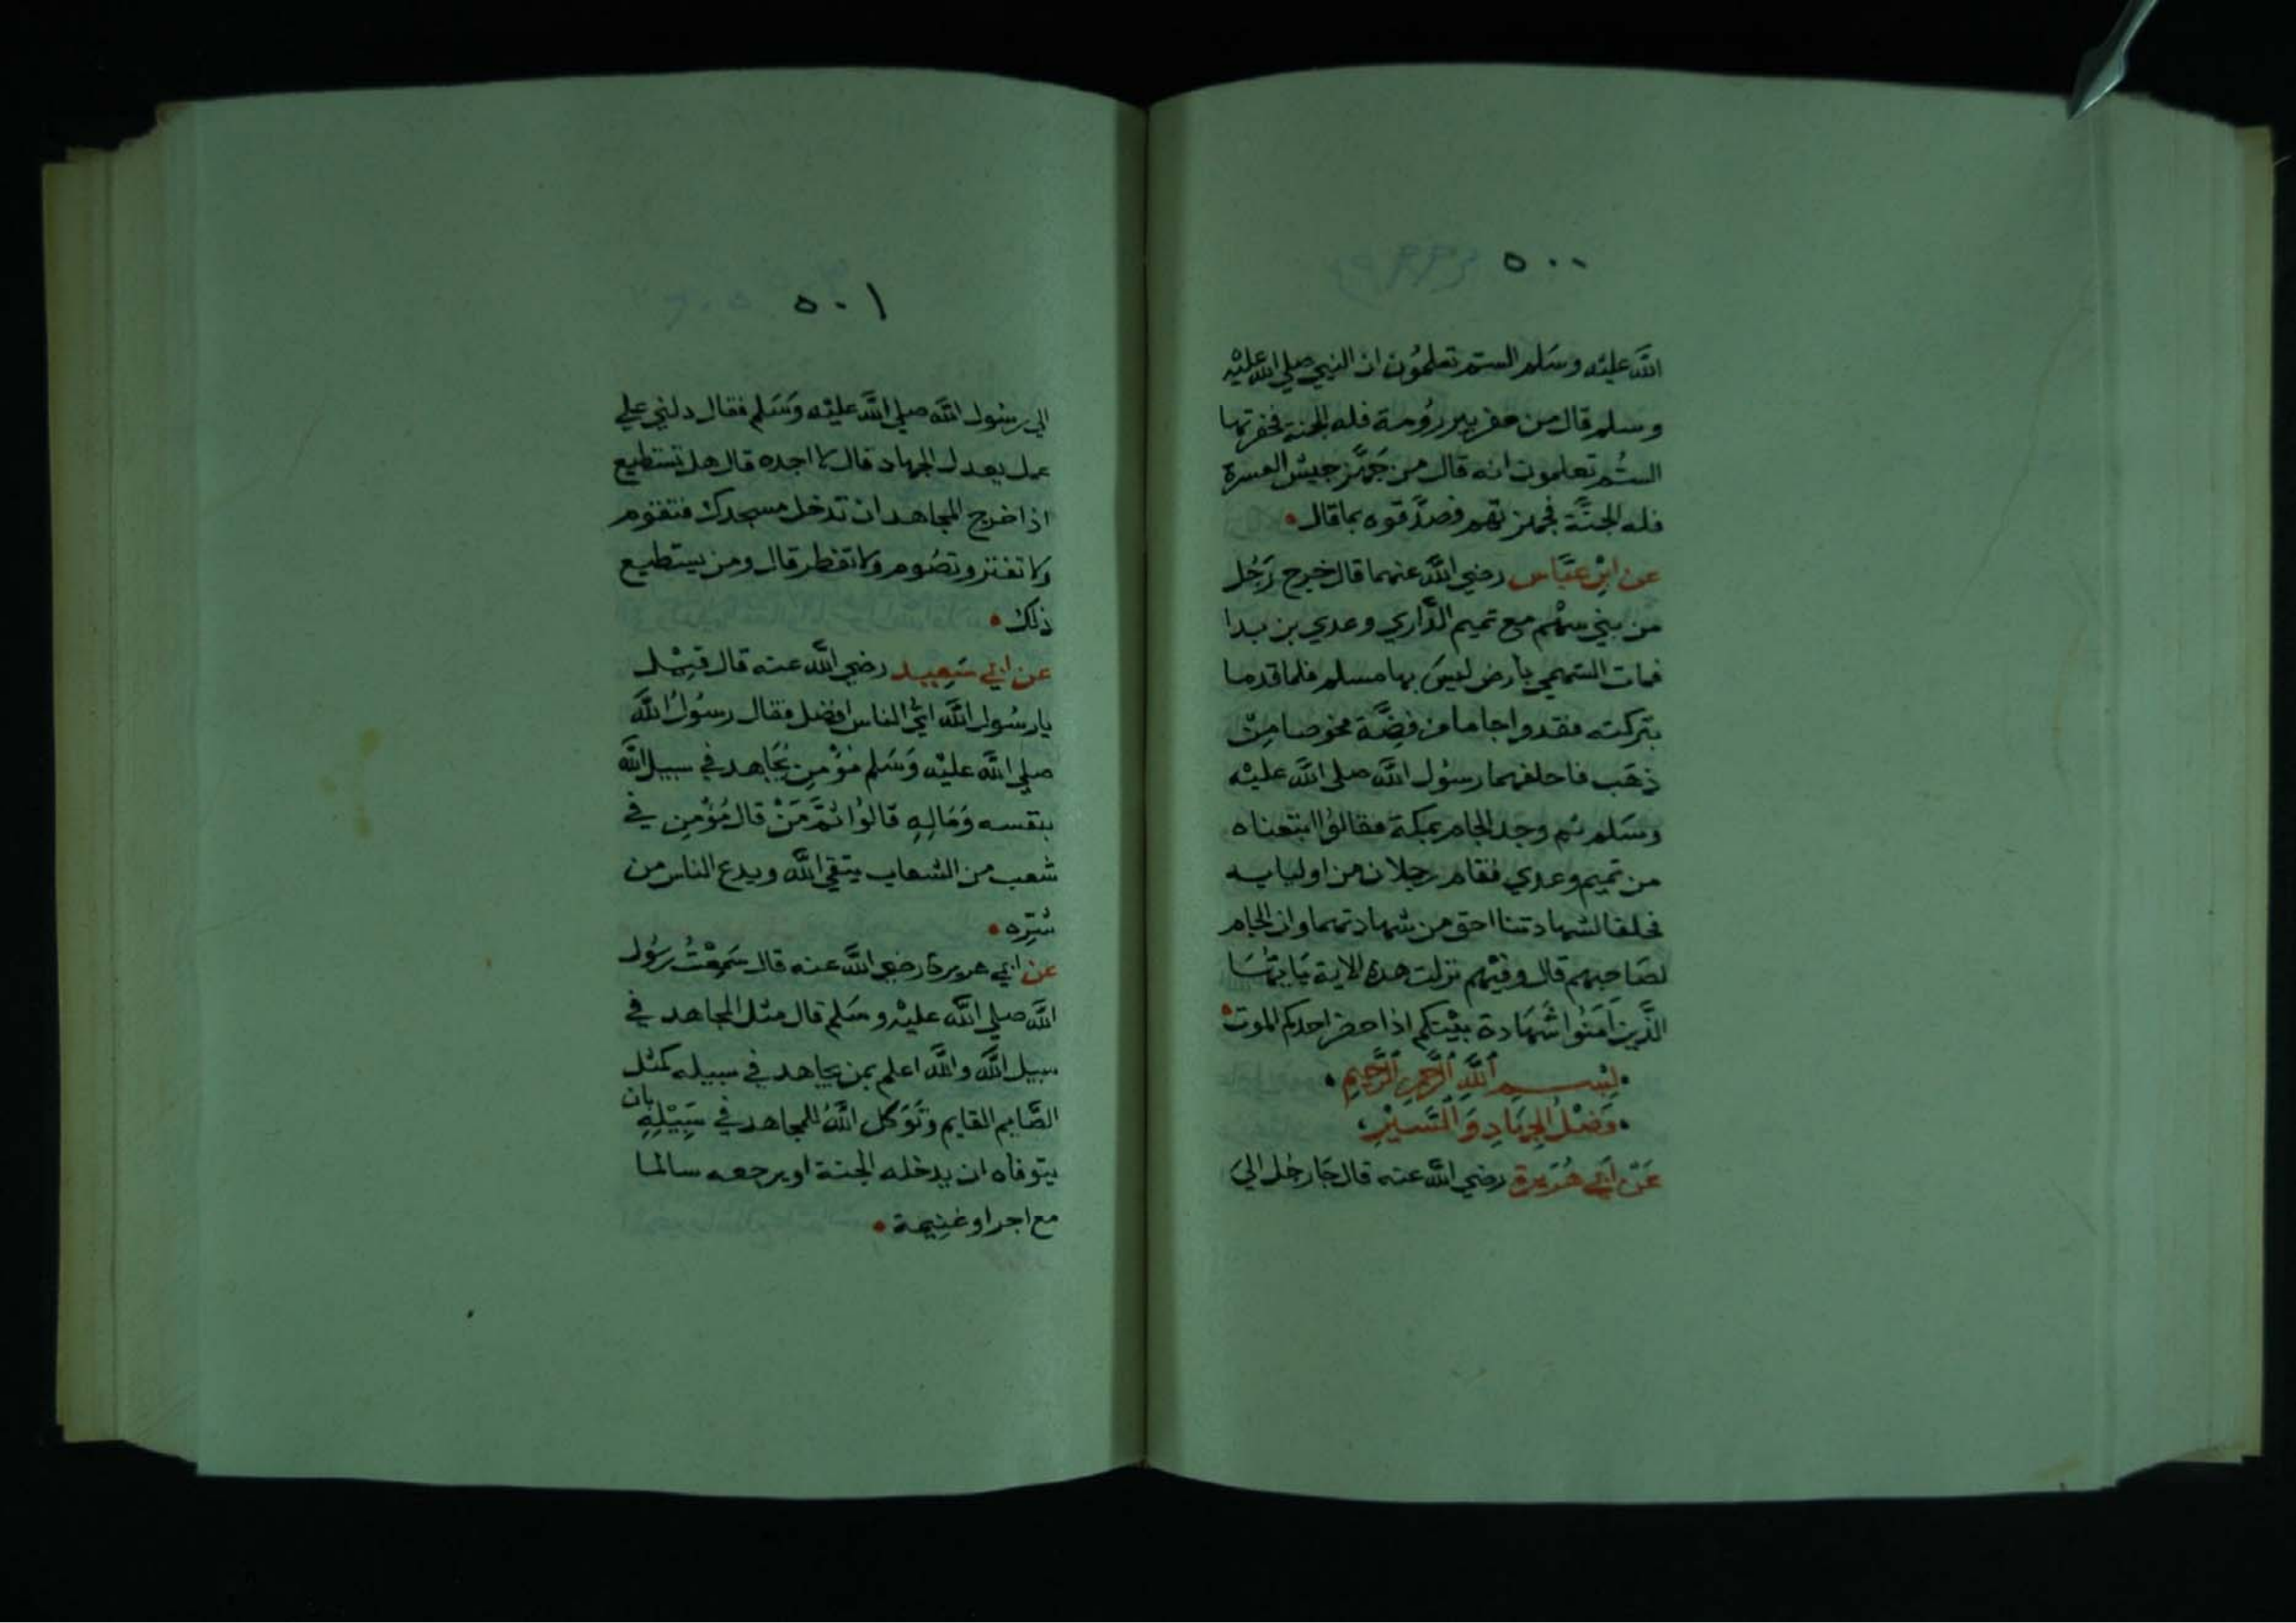 ٥٠٠
الله عليه وسلم الستم تعلمون ان النبي صلي الله عليه
وسلم قال من حفر بير رومة فله الجنة فحفرتها
الستم تعلمون انه قال من جهز جيش العسرة
فله الجنة فجهزتهم وصدقوه بما قال
عن ابن عباس رضي الله عنهما قال خرج رجل
من بني سهم مع تميم الداري وعدي بن بدا
فمات السهمي بارض ليس بها مسلم فلما قدما
بتركته فقدوا جاما من فضة مخوصا من
ذهب فاحلفهما رسول الله صلي الله عليه
وسلم ثم وجد الجام بمكة فقالوا ابتعناه
من تميم وعدي فقام رجلان من اوليايه
فحلفا لشهادتنا احق من شهادتهما وان الجام
لصاحبهم قال وفيهم نزلت هذه الاية يايها
الذين امنوا شهادة بينكم اذا حضر احدكم الموت
بسم الله الرحمن الرحيم
فضل الجهاد والسير
عن ابي هريرة رضي الله عنه قال جا رجل الي
٥٠١
الي رسول الله صلي الله عليه وسلم فقال دلني علي
عمل يعدل الجهاد قال لا اجده قال هل تستطيع
اذا خرج المجاهد ان تدخل مسجدك فتقوم
ولا تفتر وتصوم ولا تفطر قال ومن يستطيع
ذلك
عن ابي سعيد رضي الله عنه قال قيل
يا رسول الله اي الناس افضل فقال رسول الله
صلي الله عليه وسلم مؤمن يجاهد في سبيل الله
بنفسه وماله قالوا ثم من قال مؤمن في
شعب من الشعاب يتقي الله ويدع الناس من
شره
عن ابي هريرة رضي الله عنه قال سمعت رسول
الله صلي الله عليه وسلم قال مثل المجاهد في
سبيل الله والله اعلم بمن يجاهد في سبيله كمثل
الصايم القايم وتوكل الله للمجاهد في سبيله بان
يتوفاه ان يدخله الجنة او يرجعه سالما
مع اجر او غنيمة